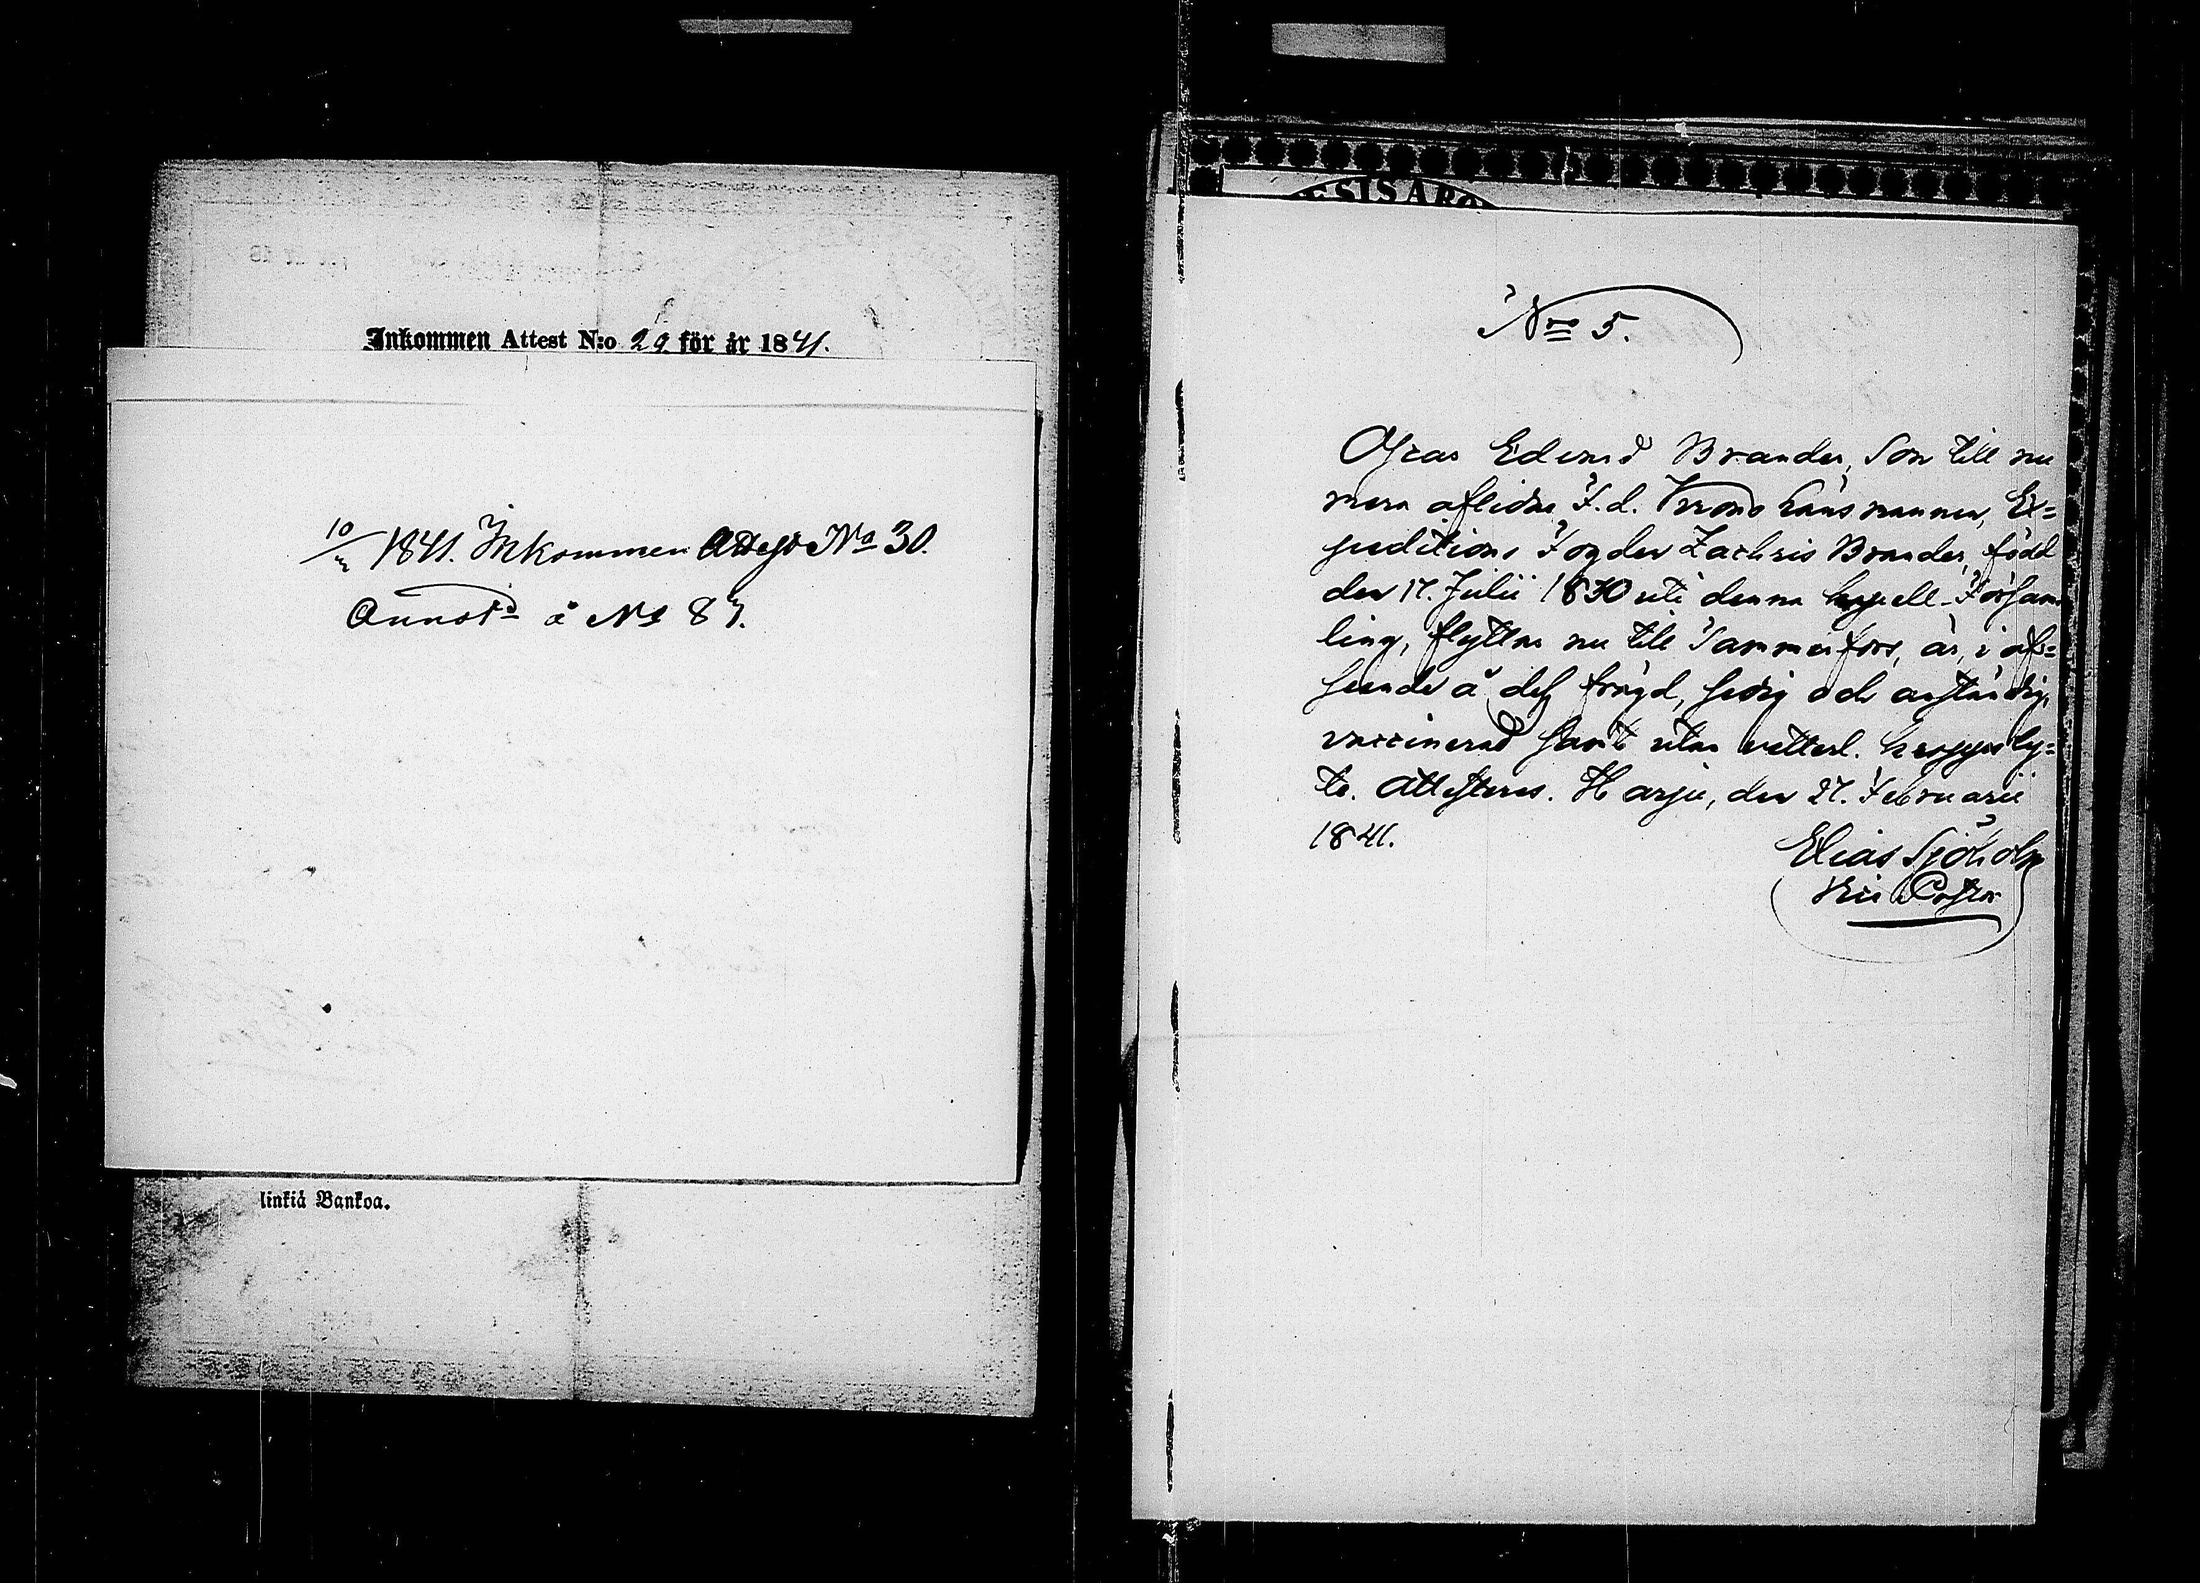 Inkommen Attest N:o 29. för år 1841.
10/3 1841. Inkommen Attest No 30.
Annot:d å No 87.
linkiä Bankoa.
SIS ARO
Nro 5.
Oscar Edvard Brander, Son till nu
mera aflidne F. d. Krono Länsmannen, Ex=
peditions Fogden Zachris Brander, född
den 17. Julii 1830 uti denna Capell-Församling,
ling, flyttar nu till Tammerfors, är, i af=
seende å dess frägd, sedig och anständig,
vaccinerad samt utan vetterl. kroppsly=
te. Attesteras. Harju, den 27. Februarii
1841.
Elias Sjöholm
Vice Pastor